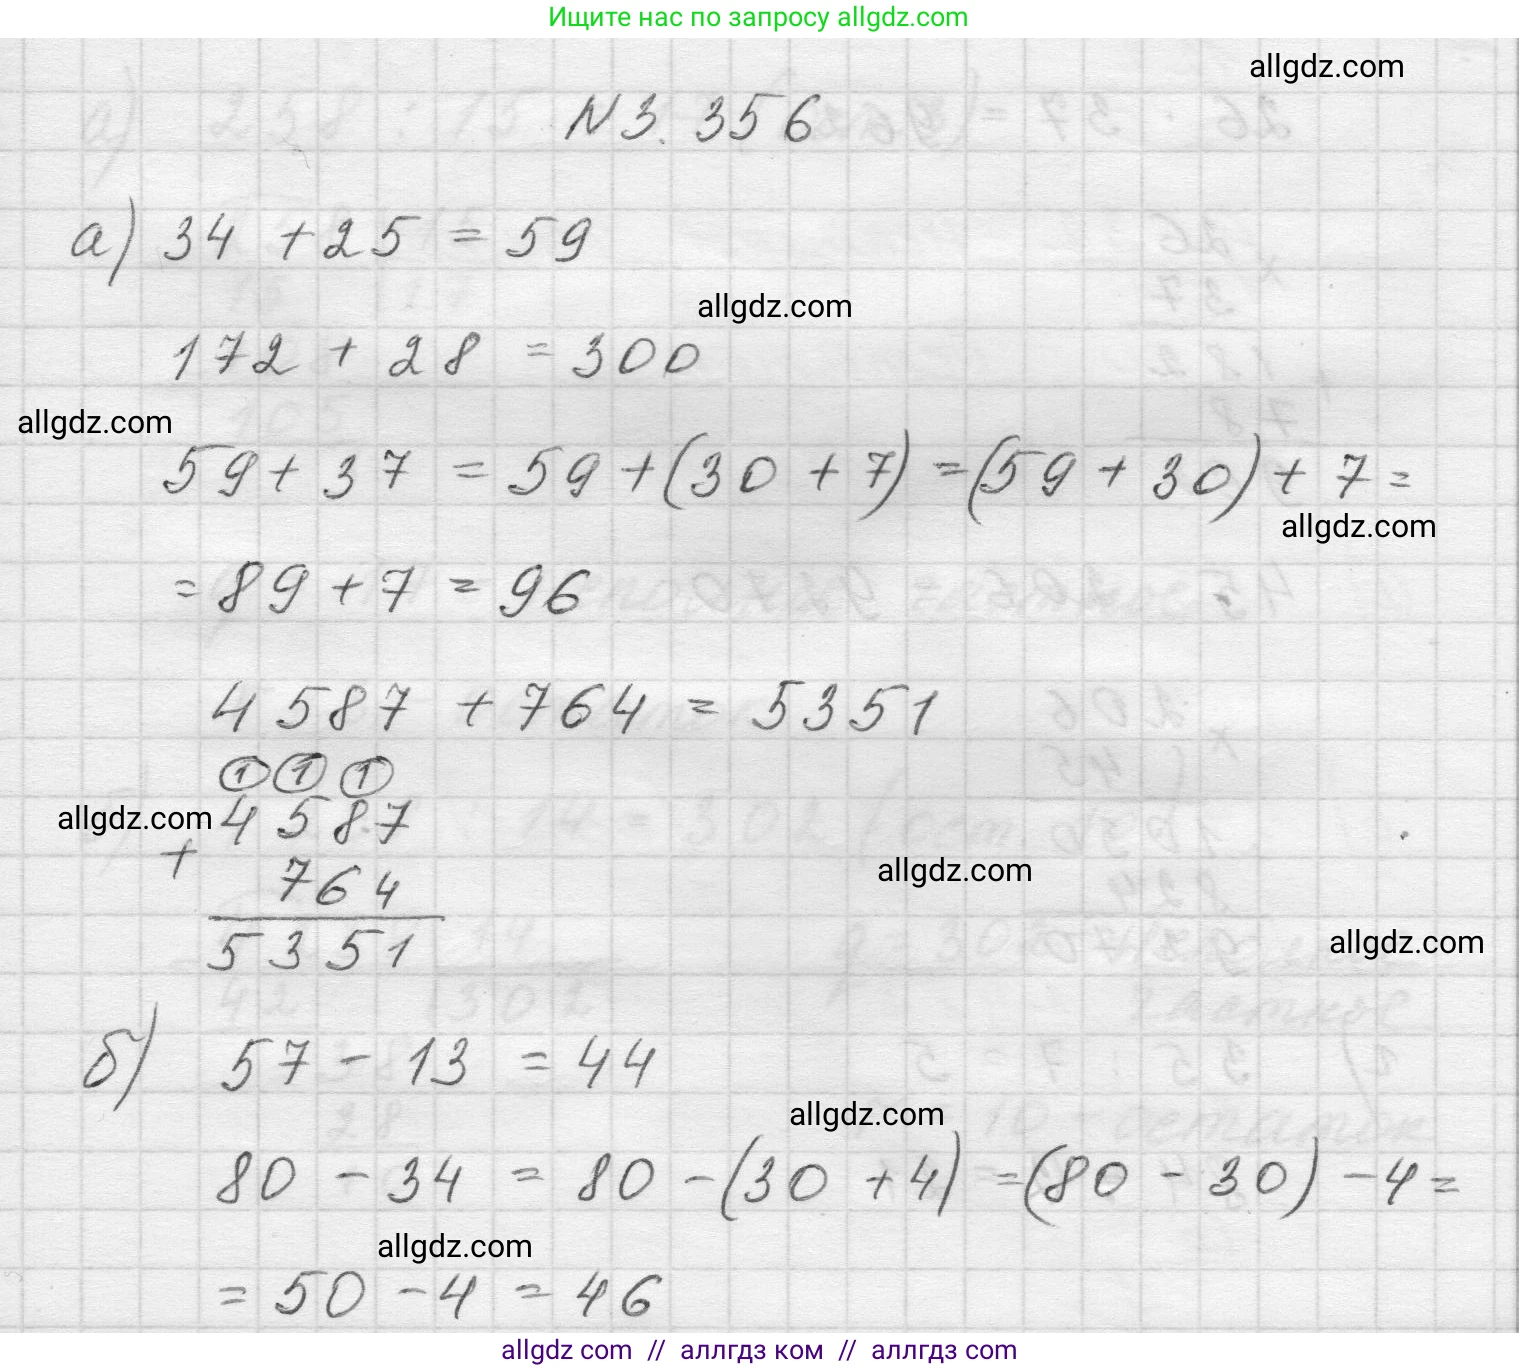 Ищите нас по запросу allgdz.com
allgdz.com
N3.356
а) 34 + 25 = 59
allgdz.com
172 + 28 = 300
allgdz.com
59 + 37 = 59 + (30 + 7) = (59 + 30) + 7 =
allgdz.com
= 89 + 7 = 96
4587 + 764 = 5351
1 1 1
allgdz.com
4587
+
764
allgdz.com
5351
allgdz.com
б) 57 - 13 = 44
allgdz.com
80 - 34 = 80 - (30 + 4) = (80 - 30) - 4 =
allgdz.com
= 50 - 4 = 46
allgdz com // аллгдз ком // аллгдз com